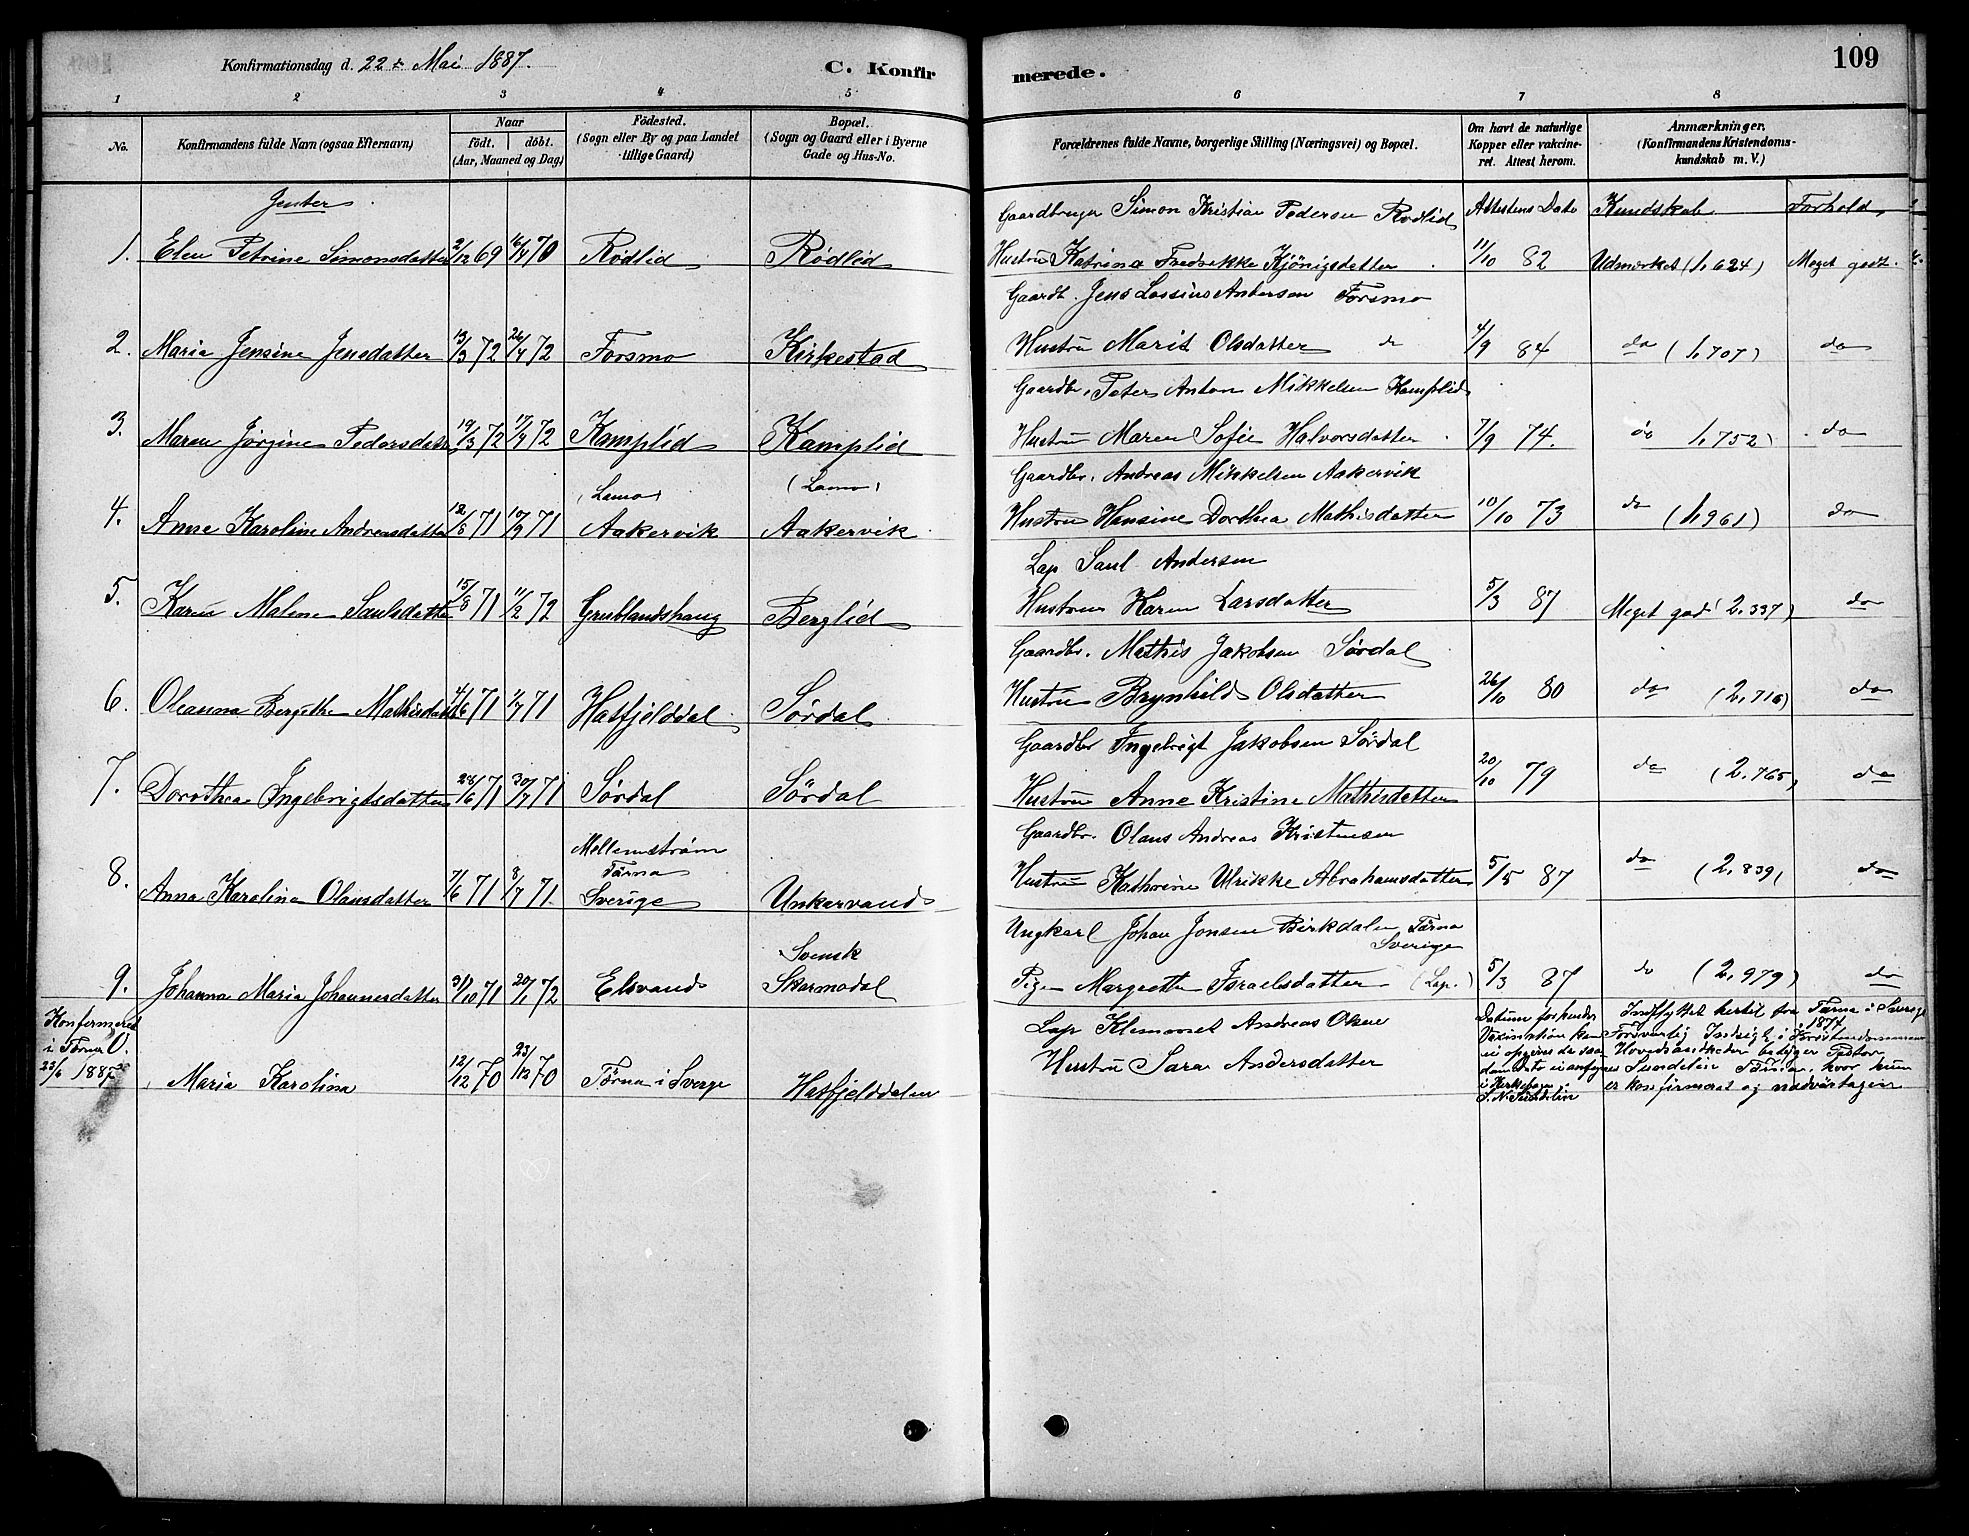 Konfirmationsdag d. 22 Mai 1887.
C. Konfir
merede.
109
1 2 3 4 5 6 7 8
No.
Konfirmandens fulde Navn (ogsaa Efternavn)
Naar
födt. döbt.
(Aar, Maaned og Dag)
Födested.
(Sogn eller By og paa Landet
tillige Gaard)
Bopæl.
(Sogn og Gaard eller i Byerne
Gade og Hus-No.
Forældrenes fulde Navne, borgerlige Stilling (Næringsvei) og Bopæl.
Om havt de naturlige
Kopper eller vakcine-
ret. Attest herom.
Anmærkninger.
(Konfirmandens Kristendoms-
kundskab m. V.)
Jenter
Gaardbruger Simon Kristian Pedersen Rødlid Attestens Dato Kundskab Forhold
1. Elen Petrine Simonsdatter 2/12 69 16/4 70 Rødlid Rødlid Hustru Katrina Fredrekke Kjönigsdatter 11/10 82 Udmærket (1,624) Meget godt.
Gaardb. Jens Lassius Andersen Forsmo
2. Maria Jensine Jensdatter 13/3 72 26/4 72 Forsmo Kirkestad Hustru Marit Olsdatter do 4/9 84 do (1,707) do
Gaardbr. Peter Anton Mikkelsen Kamplid
3. Maren Jörgine Pedersdatr 19/3 72 17/4 72 Kamplid Kamplid Hustru Maren Sofie Halvorsdatter 7/9 74. do 1,752) do
Gaardbr. Andreas Mikkelsen Aakervik
(Lamo) (Lamo)
4. Anne Karoline Andreasdatter 12/8 71 17/9 71 Aakervik Aakervik Hustru Hansine Dorthea Mathisdatter 10/10 73 do (1,961) do
Lap Saul Andersen
5. Karen Malene Saulsdatter 15/8 71 11/2 72 Grublandshaug Berglid Hustru Karen Larsdatter 5/3 87 Meget god 2,337) do
Gaardbr. Mathis Jakobsen Sørdal
6. Oleanna Bergithe Mathisdatt 4/6 71 71 Hatfjelddal Sørdal Hustru Brynhild Olsdatter 26/10 80 do (2,716) do
Gaardbr Ingebrigt Jakobsen Sördal
7. Dorothea Ingebrigtsdatter 28/6 71 30/7 71 Sørdal Sördal Hustru Anne Kristine Mathisdatter 20/10 79 do (2,765) do
Gaardbr. Olaus Andreas Kristensen
Mellemström
Tärna
8. Anna Karolina Olausdatter 7/6 71 8/7 71. Sverige Unkervand Hustru Kathrine Ulrikke Abrahamsdatter 5/5 87 do (2,839) do
Ungkarl Johan Jonsen Birkdalen, Tärna
Sverige
Svensk
9. Johanna Maria Johannesdatter 31/10 71 20/1 72 Elsvand Skarmodal Pige Margrethe Israelsdatter (Lap.) 5/3 87 do (2,979) do
Konfirmeret
i Tärna
23/6 1885
Lap Klemmet Andreas Olsen
Maria Karolina 12/12 70 23/12 70 Tärna i Sverge Hatfjelddalen
Hustru Sara Andersdatter
Datum for hendes
Vaxination kan
ei opgives da saa-
dan dato ei anføres
i Kirkebogen
S. N. Sundelin
Indflyttet hertil fra Tärna i Sverige
1874
Forsvarlig Indsigt i Kristendommens
Hovedsandheder betyger Pastor
Sundelin Tärna, hvor hun
er konfirmeret og nadvärtagen